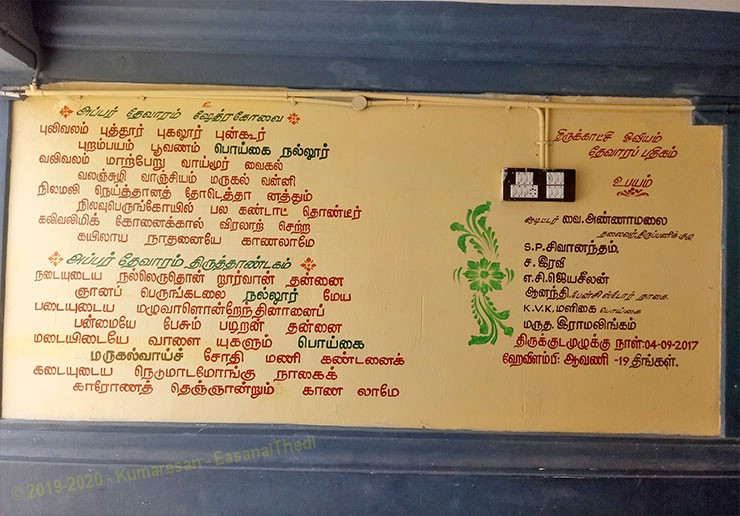 அப்பர் தேவாரம் ஷேத்ரகோவை
புலிவலம் புத்தூர் புகலூர் புன்கூர்
புறம்பயம் பூவணம் பொய்கை நல்லூர்
வலிவலம் மாற்பேறு வாய்மூர் வைகல்
வலஞ்சுழி வாஞ்சியம் மருகல் வன்னி
நிலமலி நெய்த்தானத் தோடெத்தா னத்தும்
நிலவுபெருங்கோயில் பல கண்டாட் தொண்டீர்
கலிவலிமிக் கோனைக்கால் விரலாற் செற்ற
கயிலாய நாதனையே காணலாமே
அப்பர் தேவாரம் திருத்தாண்டகம்
நடையுடைய நல்லெருதொன் றூர்வான் தன்னை
ஞானப் பெருங்கடலை நல்லூர் மேய
படையுடைய மழுவாளொன்றேந்தினானைப்
பன்மையே பேசும் படிறன் தன்னை
மடையிடையே வாளை யுகளும் பொய்கை
மருகல்வாய்ச் சோதி மணி கண்டனைக்
கடையுடைய நெடுமாடமோங்கு நாகைக்
காரோணத் தெஞ்ஞான்றும் காண லாமே
திருக்காட்சி ஓவியம்
தேவாரப் பதிகம்
உபயம்
வை.அண்ணாமலை
தலைவர்,திருப்பணிக்குழு
S.P.சிவானந்தம்,
ச.இரவி
எ.சி.ஜெயசீலன்
ஆனந்தி. நாகை.
K.V.K.மளிகை பொய்கை
மருத.இராமலிங்கம்
திருக்குடமுழுக்கு நாள்:04-09-2017
ஹேவிளம்பி: ஆவணி -19 திங்கள்.
© 2019-2020 - Kumaresan - EasanaiThedi